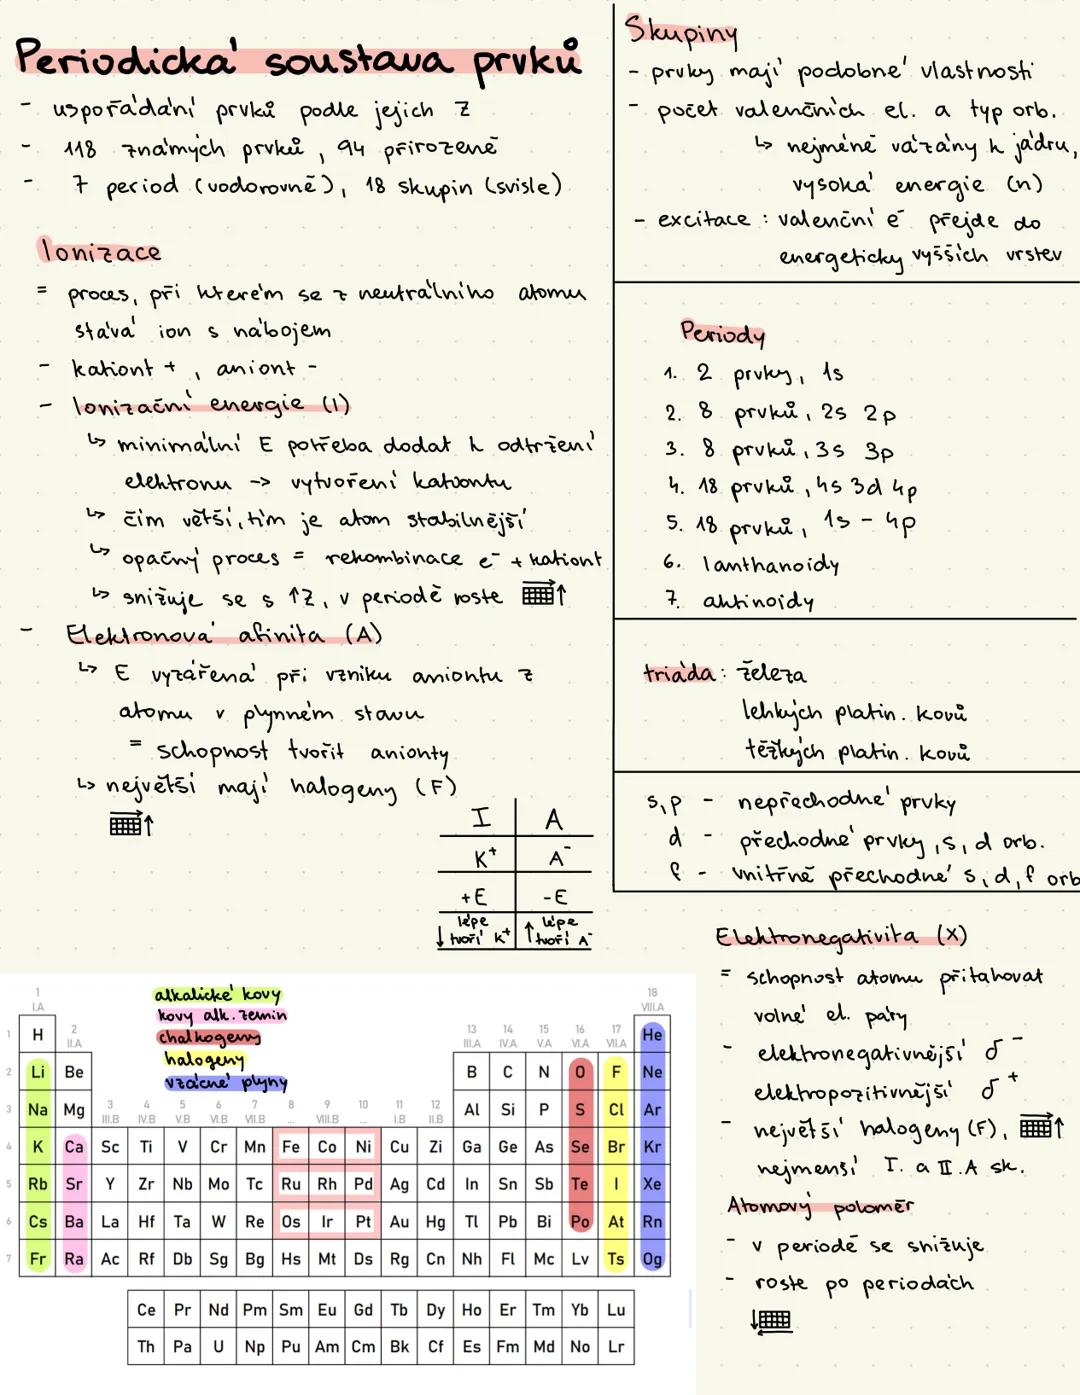 Periodická soustava prvků
- uspořádání prvků podle jejich Z
- 118 známých prvků, 94 přirozeně
- 7 period (vodorovně), 18 skupin (svisle)
Ionizace
= proces, při kterém se z neutrálního atomu
stává ion s nábojem
- kationt +, aniont -
- Ionizační energie (I)
↳ minimální E potřeba dodat k odtržení
elektronu -> vytvoření kationtu
↳ čím větší, tím je atom stabilnější
↳ opačný proces = rekombinace e⁻ + kationt
↳ snižuje se s ↑Z, v periodě roste ↑
- Elektronová afinita (A)
↳ E vyzářená při vzniku aniontu z
atomu v plynném stavu
= schopnost tvořit anionty
↳ největší mají halogeny (F)
↑
I A
K⁺ A⁻
+E -E
↓ lépe tvoří K⁺ ↑ lépe tvoří A⁻
Skupiny
- prvky mají podobné vlastnosti
- počet valenčních el. a typ orb.
↳ nejméně vázány k jádru,
vysoká energie (n)
- excitace : valenční e⁻ přejde do
energeticky vyšších vrstev
Periody
1. 2 prvky, 1s
2. 8 prvků, 2s 2p
3. 8 prvků, 3s 3p
4. 18 prvků, 4s 3d 4p
5. 18 prvků, 1s - 4p
6. lanthanoidy
7. aktinoidy
triáda: železa
lehkých platin. kovů
těžkých platin. kovů
s,p - nepřechodné prvky
d - přechodné prvky, s, d orb.
f - vnitřně přechodné s, d, f orb
Elektronegativita (X)
= schopnost atomu přitahovat
volné el. páry
- elektronegativnější δ⁻
elektropozitivnější δ⁺
- největší halogeny (F), ↑
nejmenší I. a II.A sk.
Atomový poloměr
- v periodě se snižuje
- roste po periodách
↓
alkalické kovy
kovy alk. zemin
chalkogeny
halogeny
vzácné plyny
1 18
I.A VIII.A
1 H 2 13 14 15 16 17 He
II.A III.A IV.A V.A VI.A VII.A
2 Li Be B C N O F Ne
3 Na Mg 3 4 5 6 7 8 9 10 11 12 Al Si P S Cl Ar
III.B IV.B V.B VI.B VII.B ... VIII.B ... I.B II.B
4 K Ca Sc Ti V Cr Mn Fe Co Ni Cu Zi Ga Ge As Se Br Kr
5 Rb Sr Y Zr Nb Mo Tc Ru Rh Pd Ag Cd In Sn Sb Te I Xe
6 Cs Ba La Hf Ta W Re Os Ir Pt Au Hg Tl Pb Bi Po At Rn
7 Fr Ra Ac Rf Db Sg Bg Hs Mt Ds Rg Cn Nh Fl Mc Lv Ts Og
Ce Pr Nd Pm Sm Eu Gd Tb Dy Ho Er Tm Yb Lu
Th Pa U Np Pu Am Cm Bk Cf Es Fm Md No Lr